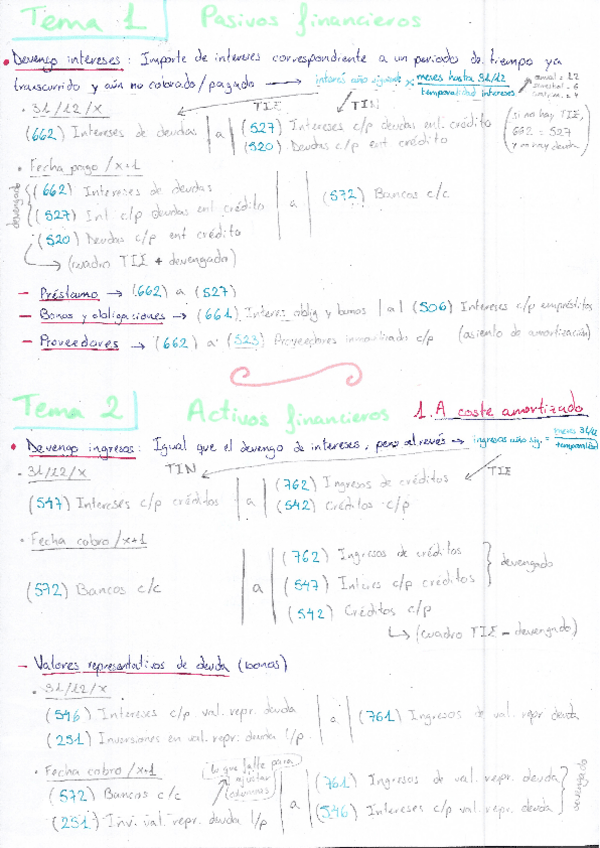 Tema 1 Pasivos financieros
• Devengo intereses: Importe de intereses correspondiente a un periodo de tiempo ya
transcurrido y aún no cobrado/pagado → interés año siguiente × meses hasta 31/12 / temporalidad intereses
anual = 12
• 31/12/X
TIE TIN
(662) Intereses de deudas | a | (527) Intereses c/p deudas ent. crédito
(520) Deudas c/p ent crédito
(si no hay TIE,
662 = 527
y no hay deuda)
• Fecha pago /x+1
devengado
(662) Intereses de deudas
(527) Int. c/p deudas ent crédito | a | (572) Bancos c/c
(520) Deudas c/p ent crédito
→ (cuadro TIE + devengada)
- Préstamo → (662) a (527)
- Bonos y obligaciones → (661) Interes oblig y bonos | a | (506) Intereses c/p empréstitos
- Proveedores → (662) a (523) Proveedores inmovilizado c/p (asiento de amortización)
Tema 2 Activos financieros 1. A coste amortizado
• Devengo ingresos: Igual que el devengo de intereses, pero al revés → ingresos año sig. =
• 31/12/X
TIN TIE
(547) Intereses c/p créditos | a | (762) Ingresos de créditos
(542) Créditos c/p
• Fecha cobro /x+1
(762) Ingresos de créditos
devengado
(572) Bancos c/c | a | (547) Inters c/p créditos
(542) Créditos c/p
→ (cuadro TIE - devengado)
- Valores representativos de deuda (bonos)
• 31/12/X
(546) Intereses c/p val. repr. deuda | a | (761) Ingresos de val. repr deuda
(251) Inversiones en val. repr. deuda l/p
• Fecha cobro /x+1
lo que falte para
ajustar
columnas
(572) Bancos c/c
(251) Inv. val. repr. deuda l/p | a | (761) Ingresos de val. repr. deuda
(546) Intereses c/p val. repr. deuda
devengado